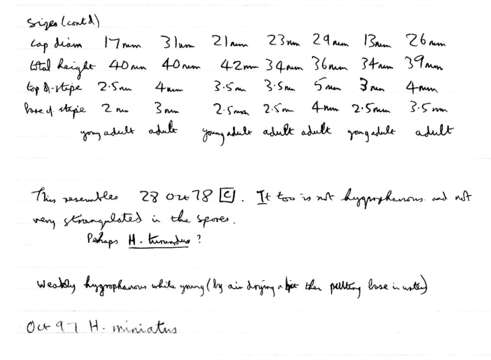 Sizes (cont'd)
Cap diam 17mm 31mm 21mm 23mm 29mm 13mm 26mm
total height 40mm 40mm 42mm 34mm 36mm 34mm 39mm
top of stipe 2.5mm 4mm 3.5mm 3.5mm 5mm 3mm 4mm
base of stipe 2mm 3mm 2.5mm 2.5mm 4mm 2.5mm 3.5mm
young adult adult young adult adult adult young adult adult
This resembles 28 Oct 78 [C]. It too is not hygrophanous and not
very strangulated in the spores.
Perhaps H. turundus?
Weakly hygrophanous while young (by air drying a bit then putting base in water)
Oct 97 H. miniatus